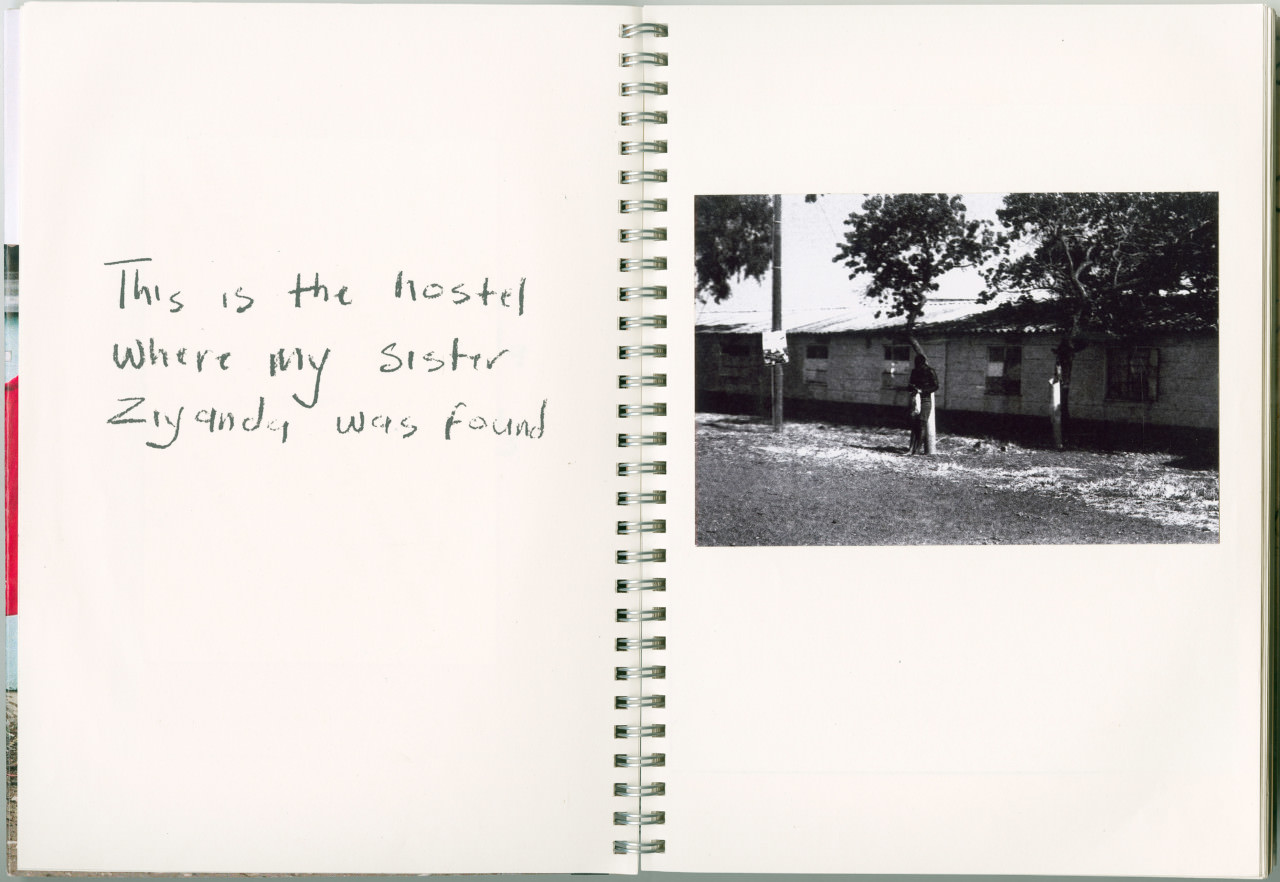 This is the hostel
where my sister
Ziyanda was found